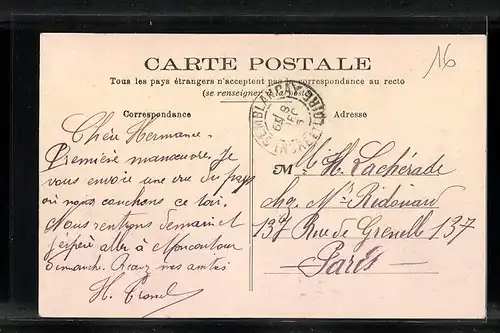 16
CARTE POSTALE
Tous les pays étrangers n'acceptent pas la correspondance au recto
(se renseigner à la poste)
Correspondance
Adresse
SEMBLANÇAY
INDRE-ET-LOIRE
Chère Hermance
Première manœuvre. Je
vous envoie une vue du pays
où nous couchons ce soir.
Nous rentrons demain et
j'espère aller à Moncontour
Dimanche. Recevez mes amitiés
H.
M H. Lachérade
chez Mr Ridouard
137 Rue de Grenelle 137
Paris